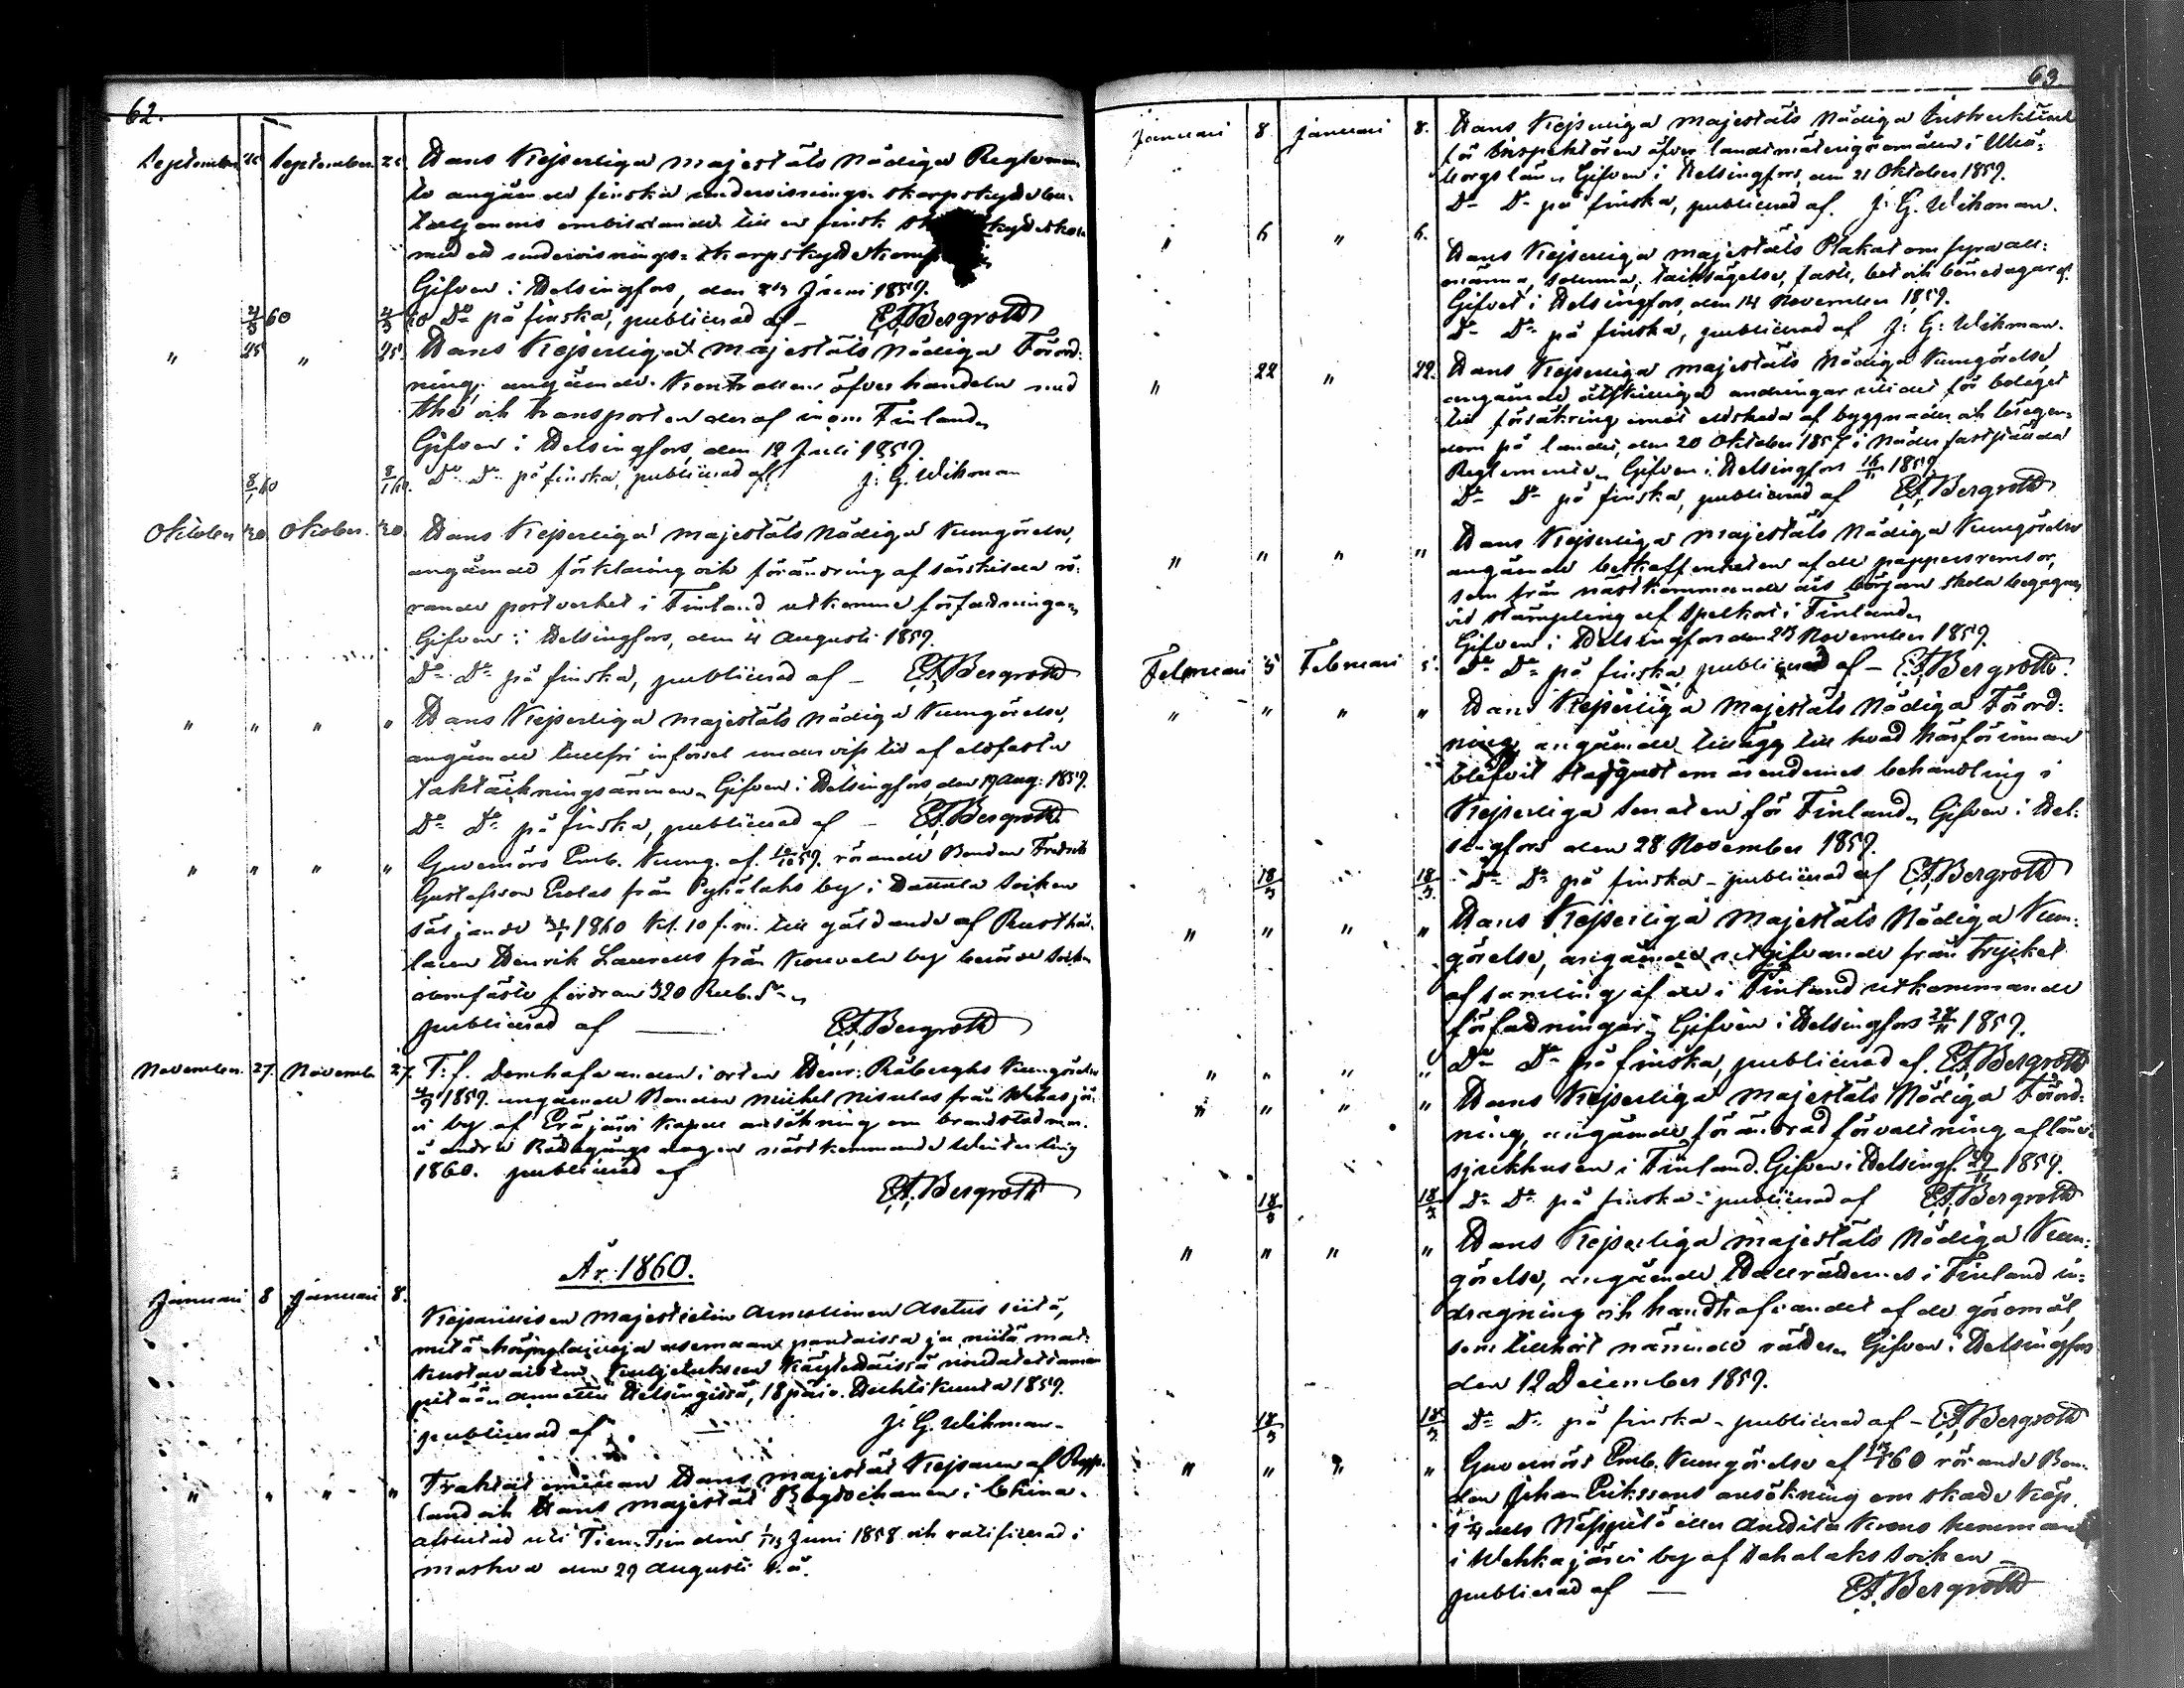 62.
September 25 September 25. Hans Kejserliga Majestäts Nådiga Reglemen-
te angående finska undervisnings-skarpskytte ba-
taljonens ombildande till en finsk skytteskola
med ett undervisnings-skarpskyttekomp
Gifven i Helsingfors, den Juni 1859.
4/3 60 4/3 60 Do på finska, publicerad af — E. A. Bergroth
" 25 " 25. Hans Kejserliga Majestäts Nådiga Förord-
ning, angående Kontrollen öfver handeln med
thé och transporten deraf inom Finland.
Gifven i Helsingfors, den 18 Juli 1859.
8/1 60 8/1 60. Do Do på finska, publicerad af: J: G. Wikman
Oktober 30 Oktober. 30. Hans Kejserliga Majestäts Nådiga Kungörelse,
angående förklaring och förändring af särskilda rö-
rande postverket i Finland utkomna författningar.
Gifven i Helsingfors, den 4 Augusti 1859.
Do Do på finska, publicerad af — E. A. Bergroth
" " " " Hans Kejserliga Majestäts Nådiga Kungörelse,
angående tullfri införsel under viss tid af eldfasta
taktäckningsämnen. Gifven i Helsingfors, den 19 Aug: 1859.
Do Do på finska, publicerad af — E. A. Bergroth
" " " " Guvernörs Emb. Kung. af 59. rörande Bonden Fredrik
Gustafsson Erolas från Pyhälahs by i Hattula Socken
1860 kl. 10 f.m. till gäldande af Rusthål-
laren Henrik Laurells från Kouvola by Socken
fordran 320 Rub. Sr.
publicerad af — E. A. Bergroth
November. 27. Novemb. 27. T: f. Domhafvanden i orten Henr: Råberghs Kungörelse
1859. angående Bonden Michel Nisulas från Wehkajär-
vi by af Eräjärvi Kapell ansökning om brandstodsm.
å andra Rådagångs dagen nästkommande Winterting
1860. publicerad af
E. A. Bergroth
År 1860.
Januari 8 Januari 8. Kejsarillisen Majesteetin Armollinen Asetus siitä,
mitä asemaan pantaissa ja niitä mat-
kustavaisten kuljetuksen käytettäissä noudatettaman
pitää. Annettu Helsingissä, 18 päiv. Huhtikuuta 1859.
publicerad af — J: G. Wikman
" " " " Traktat emellan Hans Majestät Kejsaren af Ryss-
land och Hans Majestät Bogdochanen i China.
afslutad uti Tien-Tsin den 1/13 Juni 1858 och ratificerad i
Moskva den 29 Augusti s.å.
63.
Januari 8 Januari 8. Hans Kejserliga Majestäts Nådiga Instruktion
för Inspektören öfver landtmäterigöromålen i Uleå-
borgs län. Gifven i Helsingfors, den 21 Oktober 1859.
Do Do på finska, publicerad af. J: G. Wikman.
" 6 " 6. Hans Kejserliga Majestäts Plakat om fyra all-
männa, solenna, tacksägelse, faste, bot och bönedagar.
Gifvet i Helsingfors, den 14 November 1859.
Do Do på finska, publicerad af J: G: Wikman.
" 22 " 22. Hans Kejserliga Majestäts Nådiga Kungörelse,
angående åtskilliga ändringar uti det för bolaget
till försäkring emot eldskada af byggnader och lösegen-
dom på landet, den 20 Oktober 1857 i Nåder fastställda
Reglemente. Gifven i Helsingfors 16/11 1859.
Do Do på finska, publicerad af E. A. Bergroth
" " " " Hans Kejserliga Majestäts Nådiga Kungörelse
angående beskaffenheten af de pappersremsor,
som från nästkommande års början skola begagnas
vid stämpling af spelkort i Finland.
Gifven i Helsingfors den 23 November 1859.
Februari 5 Februari 5. Do Do på finska publicerad af — E. A. Bergroth.
" " " " Hans Kejserliga Majestäts Nådiga Förord-
ning angående tillägg till hvad härförinnan
blifvit stadgadt om ärendernes behandling i
Kejserliga Senaten för Finland. Gifven i Hel-
singfors den 28 November 1859.
18/3 18/3. Do Do på finska — publicerad af E. A. Bergroth
" " " " Hans Kejserliga Majestäts Nådiga Kun-
görelse, angående utgifvande från trycket
af samling af de i Finland utkommande
författningar. Gifven i Helsingfors 28/11 1859.
" " " " Do Do på finska, publicerad af. E. A. Bergroth
" " " " Hans Kejserliga Majestäts Nådiga Förord-
ning, angående förändrad förvaltning af läns-
sjukhusen i Finland. Gifven i Helsingf. 29/11 1859.
18/3 18/3 Do Do på finska — publicerad af E. A. Bergroth
" " " " Hans Kejserliga Majestäts Nådiga Kun-
görelse, angående Hallrätternes i Finland in-
dragning och handhafvandet af de göromål,
som tillhört nämnde rätter. Gifven i Helsingfors
den 12 December 1859.
18/3 18/3 Do Do på finska — publicerad af — E. A. Bergroth
" " " " Guvernörs Emb. Kungörelse af 60 rörande Bon-
den Johan Erikssons ansökning om skatte köp
Näppilä eller Krono hemman
i Wehkajärvi by af Sahalaks Socken —
publicerad af — E. A. Bergroth